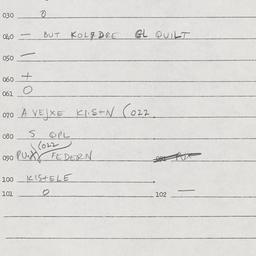 030 0
040 — BUT KOLDRE GL QUILT
050 —
060 +
061 0
070 A VEJXE KISTN (022.
080 S QPL
(022
090 PUX FEDERN
100 KISTELE
101 0 102 —